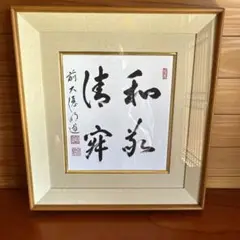 和敬
清寂
前大徳